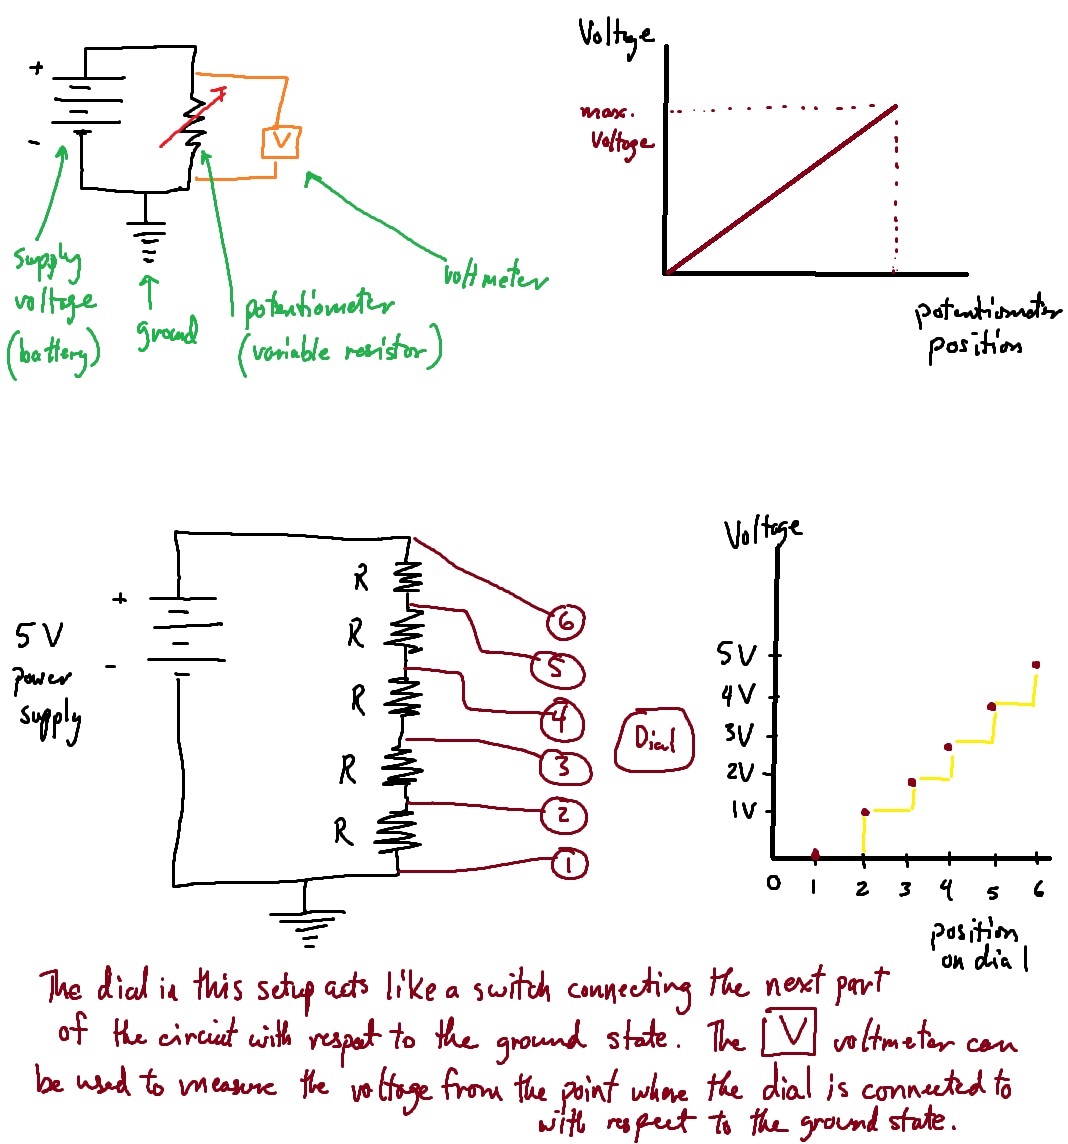 +
-
V
supply
voltage
(battery)
ground
potentiometer
(variable resistor)
voltmeter
Voltage
max.
Voltage
potentiometer
position
5V
power
supply
+
-
R
R
R
R
R
6
5
4
3
2
1
Dial
Voltage
5V
4V
3V
2V
1V
0 1 2 3 4 5 6
position
on dial
The dial in this setup acts like a switch connecting the next part
of the circuit with respect to the ground state. The V voltmeter can
be used to measure the voltage from the point where the dial is connected to
with respect to the ground state.